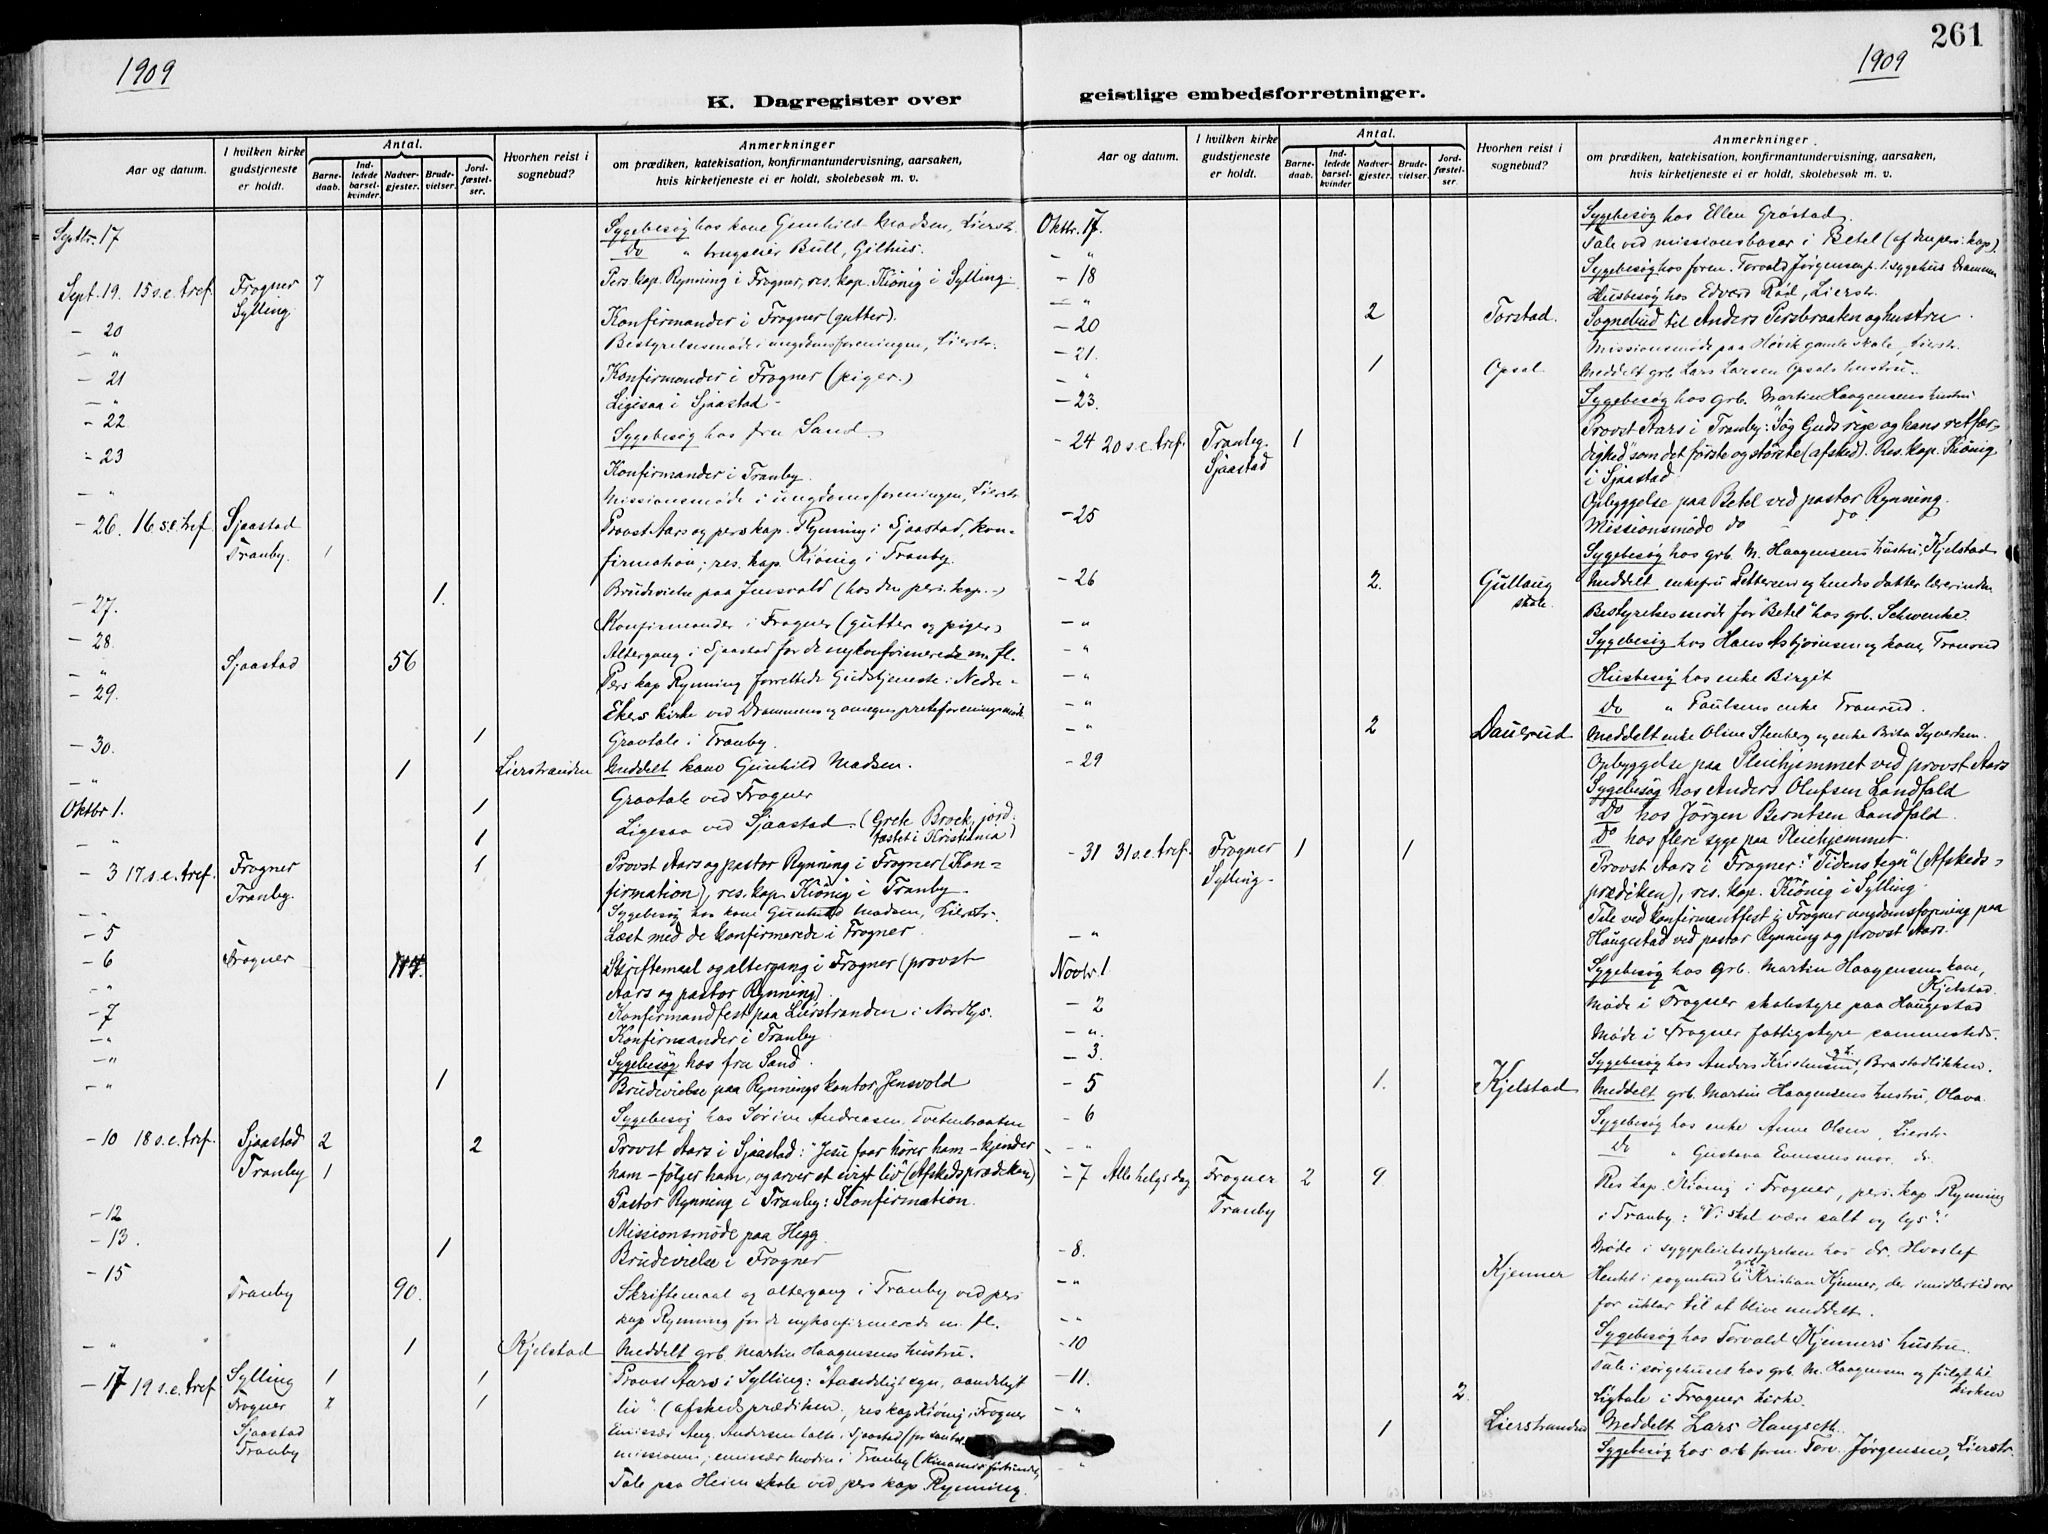 261
1909
1909
K. Dagregister over geistlige embedsforretninger.
Aar og datum.
I hvilken kirke gudstjeneste er holdt.
Antal.
Barnedaab.
Indledede barselkvinder.
Nadvergjester.
Brudevielser.
Jordfæstelser.
Hvorhen reist i sognebud?
Anmerkninger
om prædiken, katekisation, konfirmantundervisning, aarsaken, hvis kirketjeneste ei er holdt, skolebesøk m. v.
Septbr. 17 Sygebesøg hos kone Gunhild Madsen, Lierstr.
Do " brugseier Bull, Gilhus.
Sept. 19. 15 s. e. tref. Frogner 7 Pers. kap. Rynning i Frogner, res. kap. Kiönig i Sylling.
Sylling
- 20 Konfirmander i Frogner (gutter).
- " Bestyrelsesmøde i ungdomsforeningen, Lierstr.
- 21 Konfirmander i Frogner (piger.)
- " Ligesaa i Sjaastad
- 22 Sygebesøg hos fru Sand.
- 23 Konfirmander i Tranby.
- " Missionsmøde i ungdomsforeningen, Lierstr.
- 26. 16 s. e. tref. Sjaastad Provst Aars og pers. kap. Rynning i Sjaastad, kon-
Tranby. 1 firmation; res. kap. Kiönig i Tranby.
- 27. 1. Brudevielse paa Jensvold (hos den pers. kap.)
- 28. Konfirmander i Frogner (gutter og piger)
- " Sjaastad 56 Altergang i Sjaastad for de nykonfirmerede m. fl.
- 29. Pers kap Rynning forrettede Gudstjeneste i Nedre-
Ekers kirke ved Drammens og omegns presteforeningsmøde
- 30. 1 Gravtale i Tranby.
- " 1 Lierstranden Meddelt kone Gunhild Madsen.
Oktbr 1. 1 Gravtale ved Frogner
- " 1 Ligesaa ved Sjaastad. (Grete Brock, jord-
fæstet i Kristiania)
- 3 17 s. e. tref. Frogner 1 Provst Aars og pastor Rynning i Frogner (Kon-
Tranby. firmation), res. kap. Kiönig i Tranby.
- " Sygebesøg hos kone Gunhild Madsen, Lierstr.
- 5 Læst med de konfirmerede i Frogner.
- 6 Frogner 114. Skriftemaal og altergang i Frogner (provst
- " Aars og pastor Rynning)
- 7 Konfirmandfest paa Lierstranden i Nordlys.
- " Konfirmander i Tranby
- " Sygebesøg hos fru Sand.
- " 1 Brudevielse paa Rynnings kontor, Jensvold
Sygebesøg hos Sørine Andreasen, Tvetenbraaten
- 10 18 s. e. tref. Sjaastad 2 2 Provst Aars i Sjaastad: "Jesu faar hører ham - kjender
Tranby 1 ham - følger ham, og arver et evigt liv" (Afskedsprædiken)
Pastor Rynning i Tranby: Konfirmation.
- 12 Missionsmøde paa Hegg.
- 13. 1 Brudevielse i Frogner
- 15 Tranby 90. Skriftemaal og altergang i Tranby ved pers
kap Rynning for de nykonfirmerede m. fl.
- " 1 Kjelstad Meddelt grb. Martin Haagensens hustru.
- 17 19 s. e. tref Sylling 1 1 Provst Aars i Sylling: "Aandeligt syn, aandeligt
Frogner 1 liv" (afskedsprædiken, res kap Kiönig i Frogner
Sjaastad Emissær Aug. Andersen talte i Sjaastad (for
Tranby missionen; emissær Modin i Tranby (Kinamisforbundet,
Tale paa Heim skole ved pers kap Rynning.
Aar og datum.
I hvilken kirke gudstjeneste er holdt.
Antal.
Barnedaab.
Indledede barselkvinder
Nadvergjester.
Brudevielser.
Jordfæstelser.
Hvorhen reist i sognebud?
Anmerkninger.
om prædiken, katekisation, konfirmantundervisning, aarsaken, hvis kirketjeneste ei er holdt, skolebesøk m. v.
Oktbr. 17. Sygebesøg hos Ellen Gröstad.
- " Tale ved missionsbasar i Betel (af den pers. kap)
- 18 Sygebesøg hos form. Torvald Jørgensen p. t. sygehus Drammen
- " Husbesøg hos Edvard Röd, Lierstr.
- 20 2 Torstad. Sognebud til Anders Persbraaten og hustru
- 21. Missionsmøde paa Høvik gamle skole, Lierstr.
- " 1 Opsal Meddelt grb Lars Larsen Opsals hustru.
- 23. Sygebesøg hos grb. Martin Haagensens hustru
- 24 20 s. e. tref. Tranby. 1 Provst Aars i Tranby: "Søg Guds rige og hans retfær-
Sjaastad dighed" som det første og største (afsked). Res. kap. Kiönig
i Sjaastad
Opbyggelse paa Betel ved pastor Rynning.
- 25 Missionsmøde do do.
Sygebesøg hos grb. M. Haagensens hustru, Kjelstad
- 26 2. Gullaug skole. Meddelt enkefru Pettersen og hendes datter lærerinden
- " Bestyrelsesmøde for "Betel" hos grb. Schwenke.
- " Sygebesøg hos Hans Asbjørnsen og kone, Tranrud
- " Husbesøg hos enke Birgit
- " Do " Paulsens enke Tranrud.
- " 2 Dauerud Meddelt enke Oline Stenberg og enke Brita Syvertsen.
- 29 Opbyggelse paa Pleiehjemmet ved provst Aars
Sygebesøg hos Anders Olufsen Landfald
Do hos Jørgen Berntsen Landfald.
Do hos flere syge paa Pleiehjemmet.
- 31 31 s. e. tref. Frogner 1 1 Provst Aars i Frogner: "Tidens tegn" (Afskeds-
Sylling. prædiken), res. kap. Kiönig i Sylling.
Tale ved konfirmantfest i Frogner ungdomsforening paa
- " Haugestad ved pastor Rynning og provst Aars.
Novbr. 1 Sygebesøg hos grb. Martin Haagensens kone,
Kjelstad.
- 2 Møde i Frogner skolestyre paa Haugestad
- ". Møde i Frogner fattigstyre sammesteds.
- 3. Sygebesøg hos Anders Kristensen, Brastadlökken.
- 5 1. Kjelstad Meddelt grb. Martin Haagensens hustru, Olava.
- 6 Sygebesøg hos enke Anne Olsen, Lierstr.
- " Do " Gustava Evensens mor. do.
- 7 Alle helgs dag Frogner 2 9. Res kap. Kiönig i Frogner, pers. kap Rynning
Tranby i Tranby: "Vi skal være salt og lys".
- 8. Møde i sygepleiebestyrelsen hos dr. Hvoslef
- " Kjenner Hentet i sognebud til grb. Kristian Kjenner, der imidlertid var
for uklar til at blive meddelt.
- " Sygebesøg hos Torvald Kjenners hustru.
- 10 Tale i sørgehuset hos grb. M. Haagensen og fulgt til
- 11. kirken
2. Ligtale i Frogner kirke.
- " 1 Lierstranden Meddelt Lars Haugseth.
- " Sygebesøg hos arb. form. Torv. Jørgensen, Lierstr.